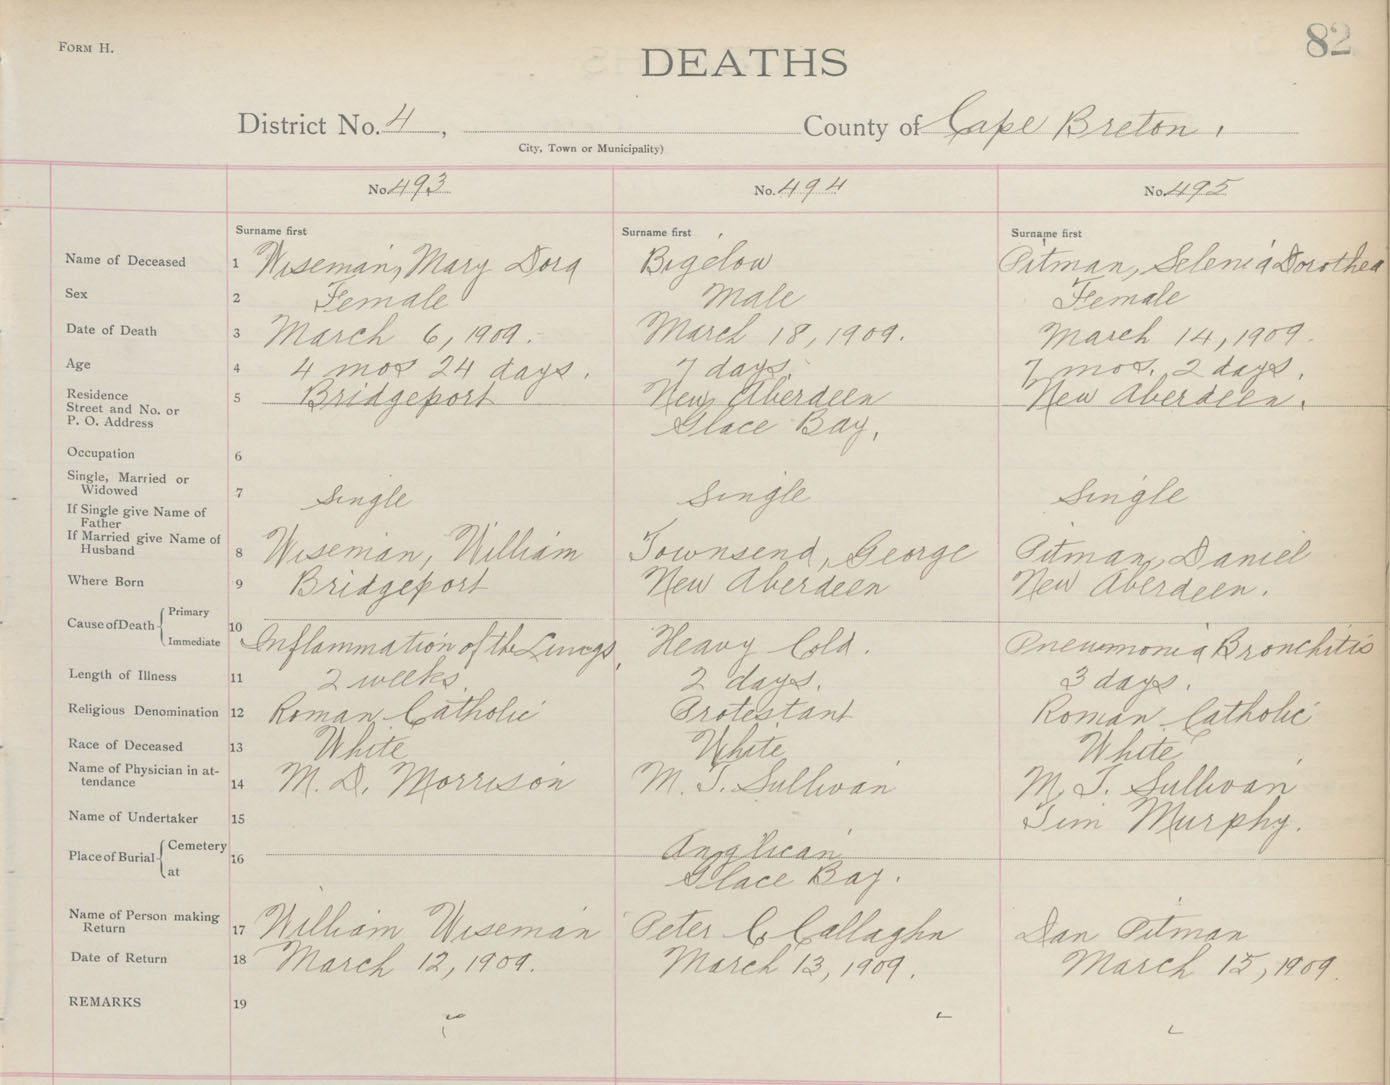 82
FORM H.
DEATHS
District No. 4, County of Cape Breton.
City, Town or Municipality)
No. 493 No. 494 No. 495
Surname first Surname first Surname first
Name of Deceased 1 Wiseman, Mary Dora Bigelow Pitman, Selenia Dorothea
Sex 2 Female Male Female
Date of Death 3 March 6, 1909. March 18, 1909. March 14, 1909.
Age 4 4 mos 24 days. 7 days. 7 mos. 2 days.
Residence
Street and No. or
P. O. Address 5 Bridgeport New Aberdeen New Aberdeen.
Glace Bay.
Occupation 6
Single, Married or
Widowed 7 Single Single Single
If Single give Name of
Father
If Married give Name of
Husband 8 Wiseman, William Townsend, George Pitman, Daniel
Where Born 9 Bridgeport New Aberdeen New Aberdeen.
Cause of Death { Primary
Immediate 10 Inflammation of the Lungs, Heavy Cold. Pneumonia Bronchitis
Length of Illness 11 2 weeks 2 days. 3 days.
Religious Denomination 12 Roman Catholic Protestant Roman Catholic
Race of Deceased 13 White White White
Name of Physician in at-
tendance 14 M. D. Morrison M. T. Sullivan M. T. Sullivan
Name of Undertaker 15 Tim Murphy.
Place of Burial { Cemetery
at 16 Anglican
Glace Bay.
Name of Person making
Return 17 William Wiseman Peter C Callaghn Dan Pitman
Date of Return 18 March 12, 1909. March 13, 1909. March 15, 1909
REMARKS 19